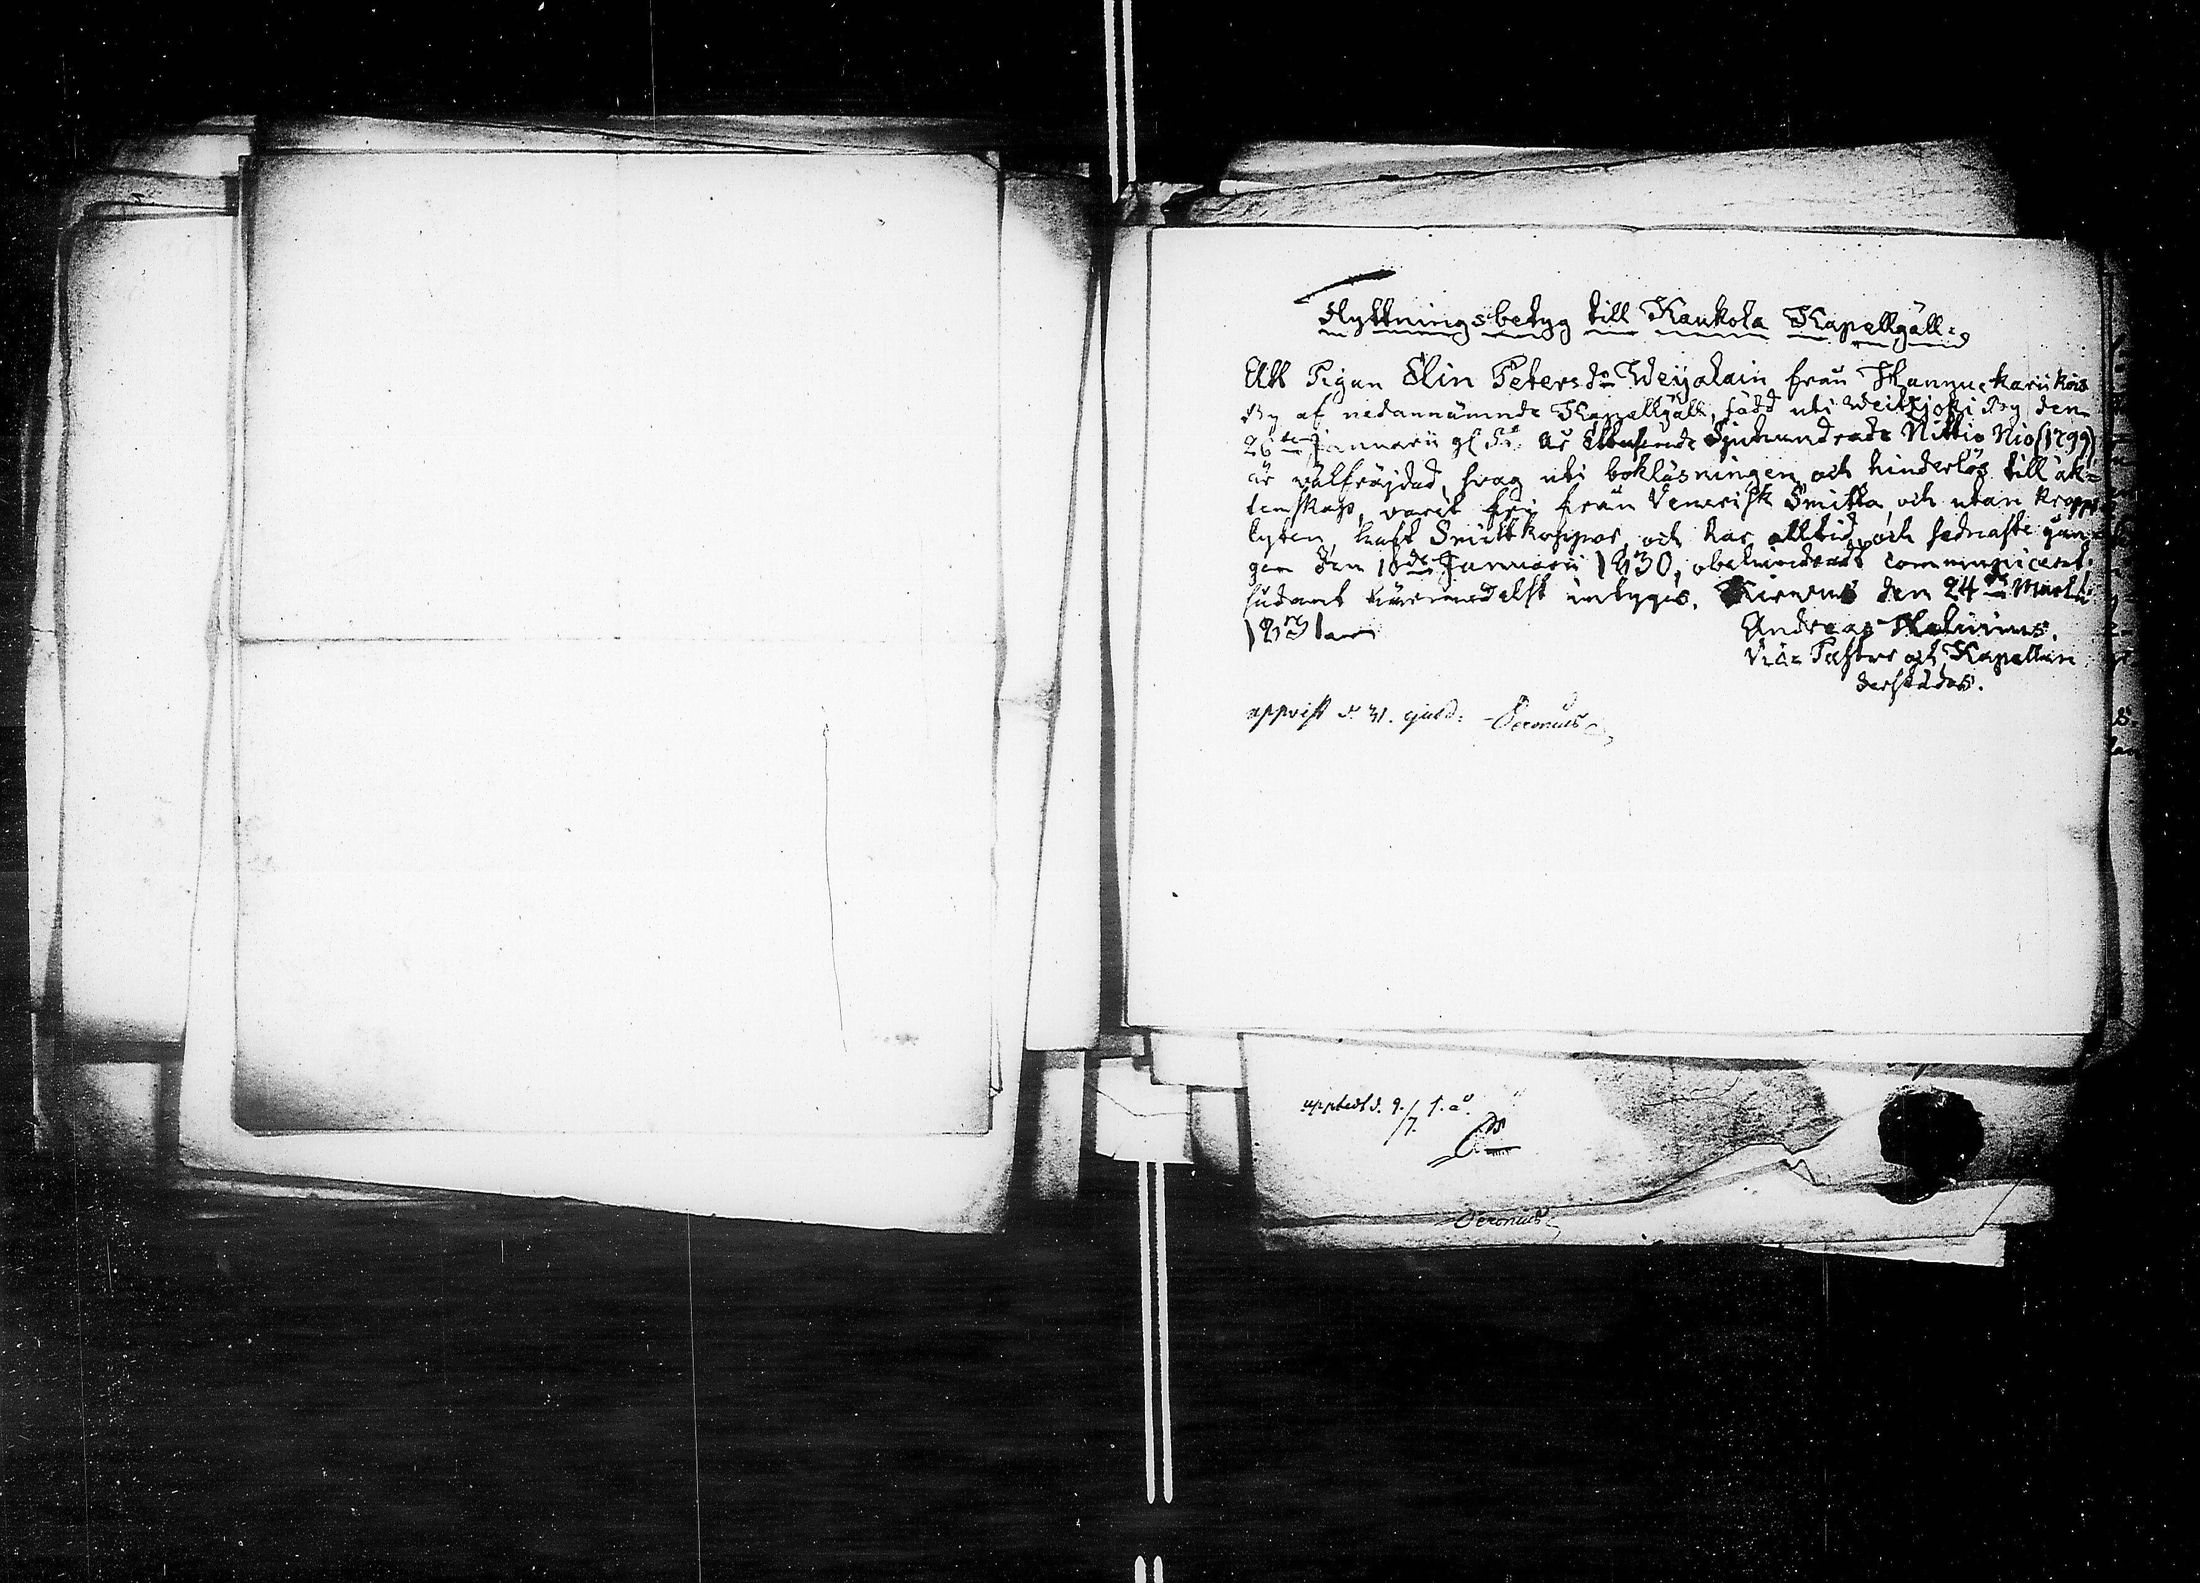 Flyttningsbetyg till Kaukola Kapellgäll:
Att Pigan Elin Petersdr Weijalain från
By af nedannämnde Kapellgäll, född uti Weitsjoki By den
26te Januarii gl. St. År Ettusende Sjuhundrade Nittio Nio (1799)
är välfräjdad, svag uti bokläsningen och hinderlös till äk=
tenskap, varit fri från Venerisk Smitta, och utan kropps
lyten, haft Smittkoppor, och har alltid, och sednaste gån-
gen den 10de Januarii 1830, obehindradt communicerat,
sådant härmedelst intygas. den 24de Martii
1831
Andreas
Vice Pastor och Kapellan
derstädes.
uppvist d. 31. ejusd:
s. å.